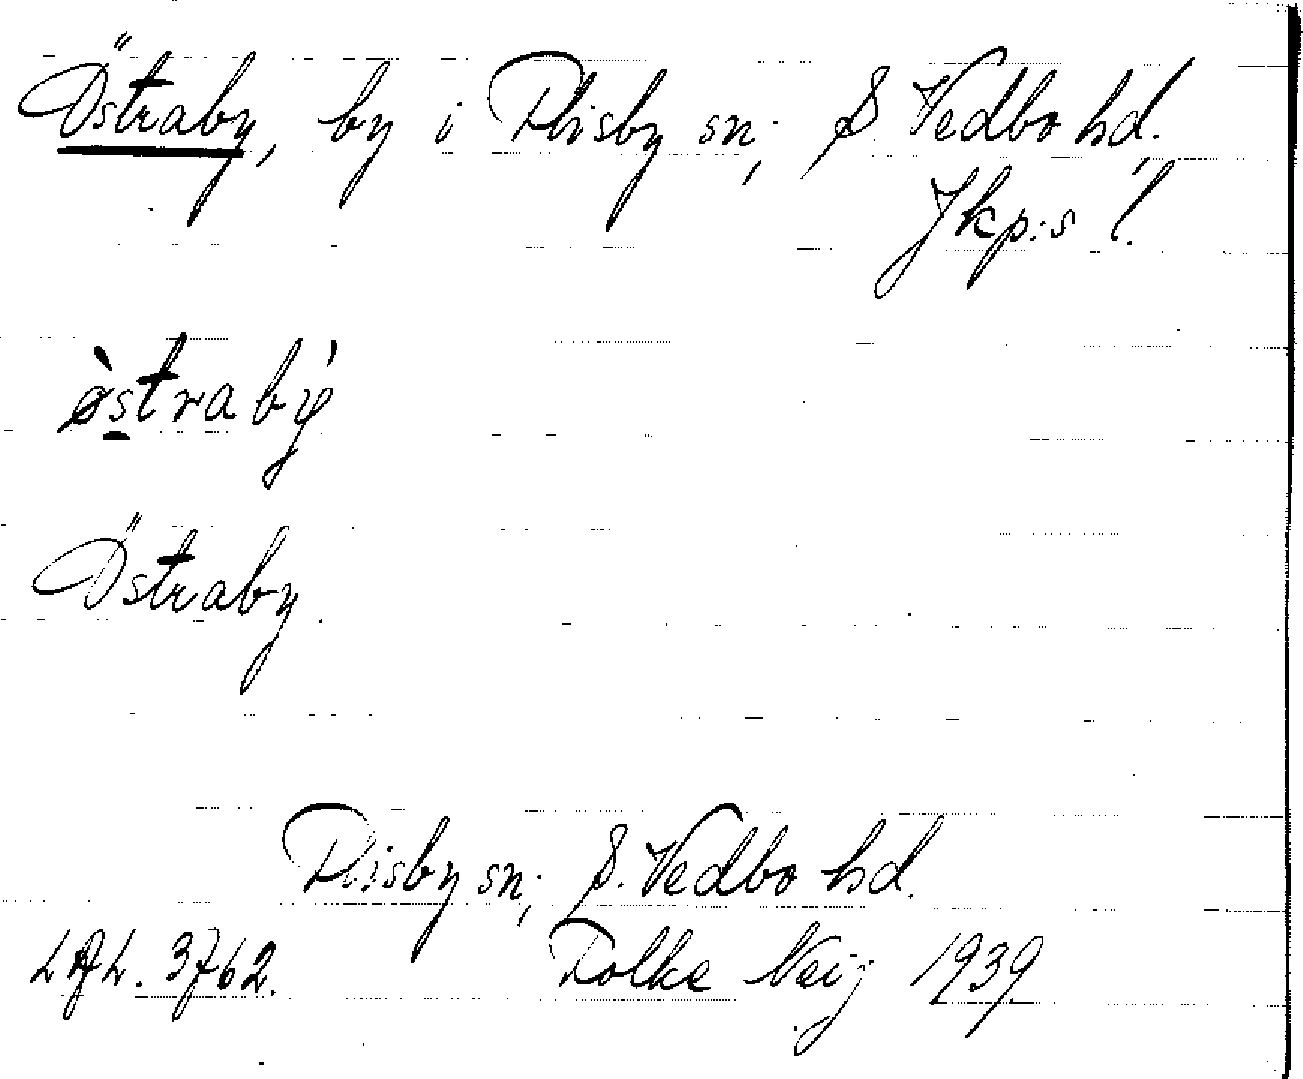 Östraby, by i Flisby sn; S. Vedbo hd.
Jkp:s l.
østraby̍
Östraby.
Flisby sn; S. Vedbo hd.
3762. Folke Neij 1939